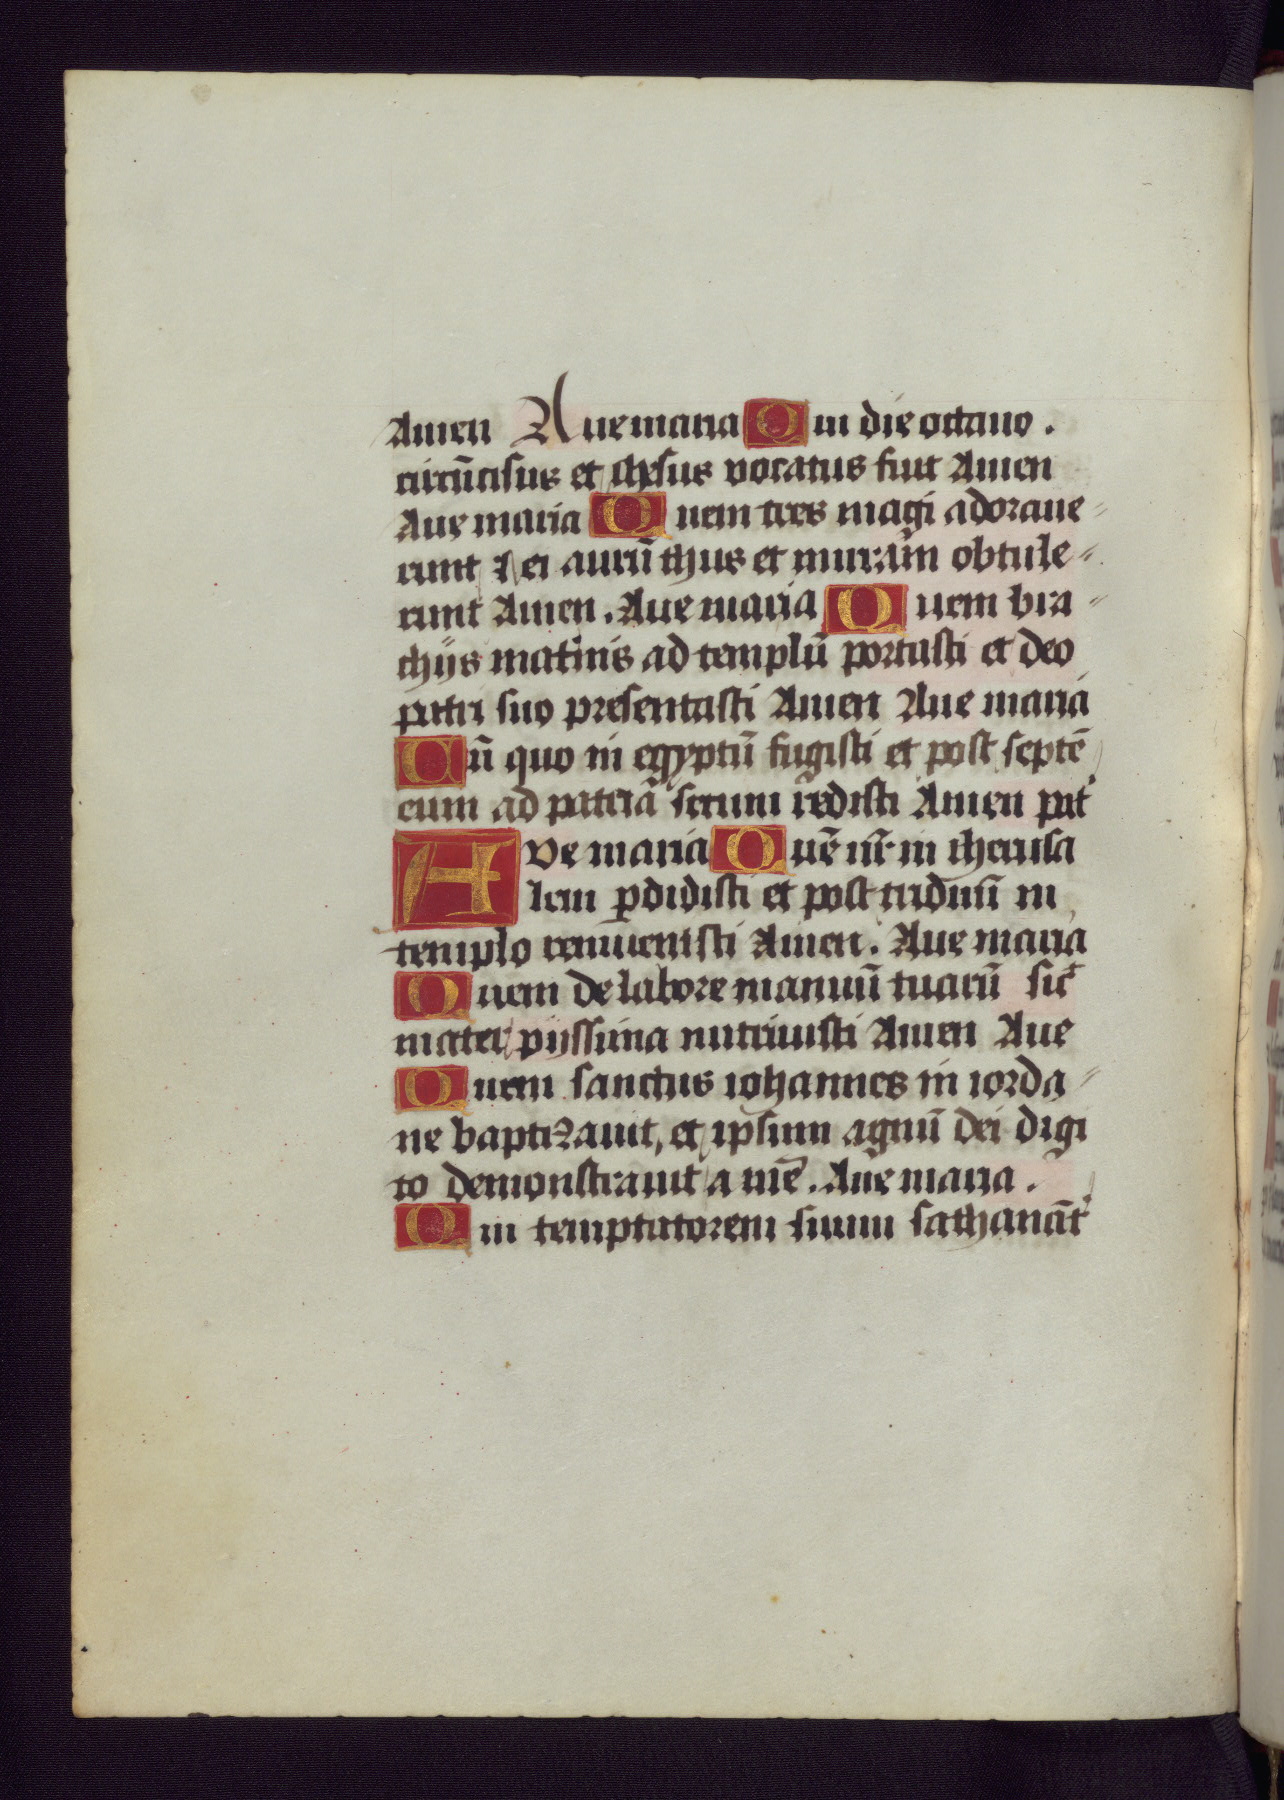 Amen Aue maria Qui in die octauo .
circūcisus et ihesus vocatus fuit Amen
Aue maria Quem tres magi adoraue-
runt ⁊ ei aurū thus et mirram obtule-
runt Amen . Aue maria Quem bra-
chijs maternis ad templū portasti et deo
patri suo presentasti Amen Aue maria
Cū quo in egyptū fugisti et post septē
eum ad patriā secum redisti Amen pat
Ave maria Quē in iherusa
lem ꝑdidisti et post triduū in
templo reinuenisti Amen . Aue maria
Quem de labore manuū tuarū sic
mater pijssima nutriuisti Amen Aue
Quem sanctus iohannes in iorda-
ne baptizauit, et ipsum agnū dei digi
to demonstrauit amē . Aue maria .
Qui temptatorem suum sathanā